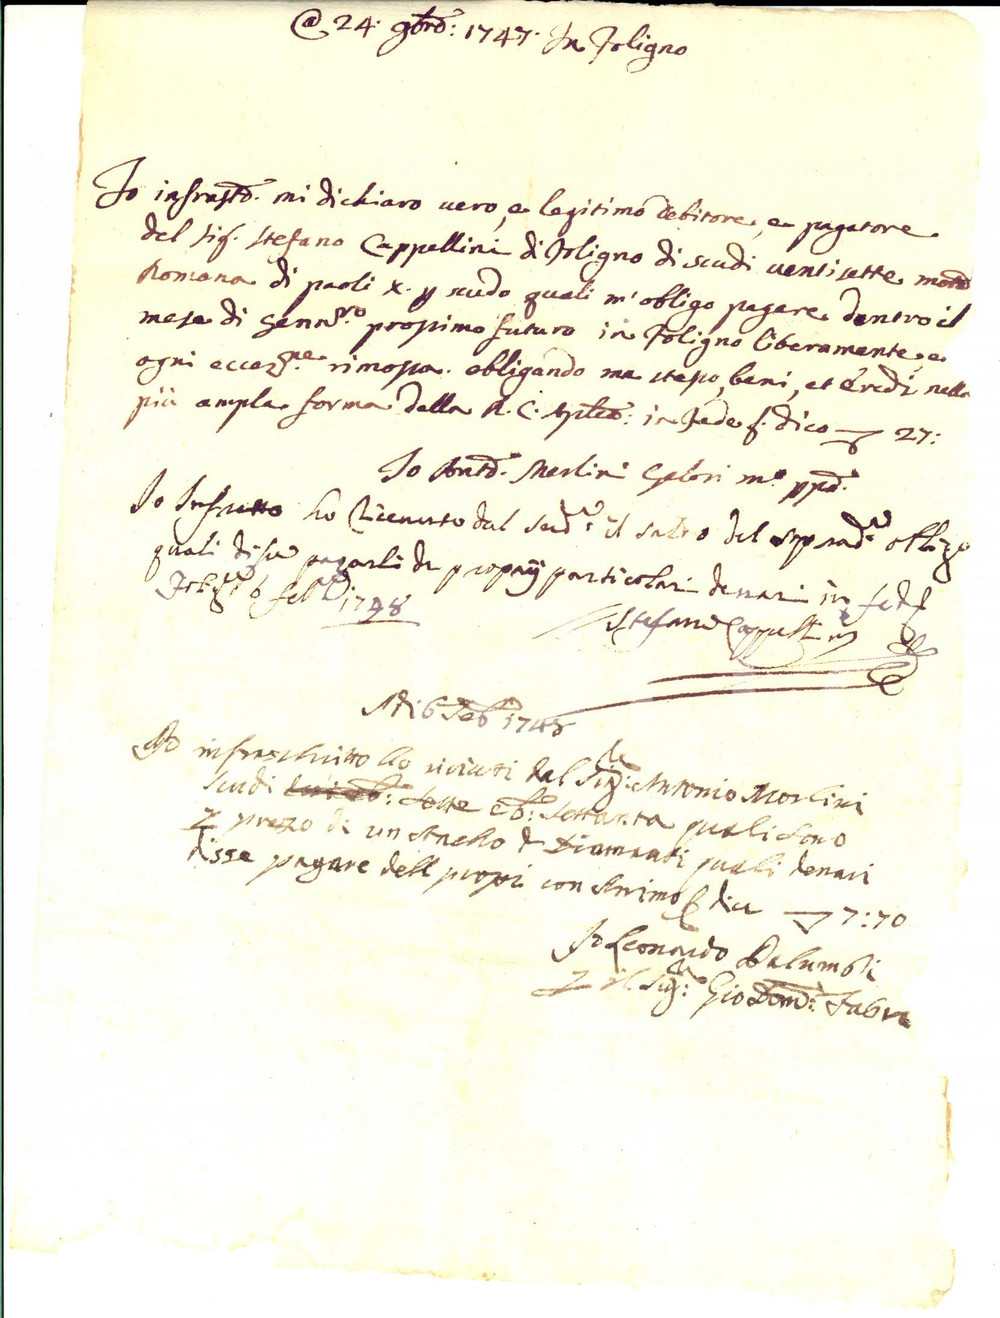 @ 24. 9bre: 1747. In Foligno
Io infratto. mi dichiaro vero, e legitimo debitore, e pagatore
del Sig. Stefano Cappellini di Foligno di scudi ventisette mota
Romana di paoli X. p scudo quali m'obligo pagare dentro il
mese di Gennro prossimo futuro in Foligno liberamente, e
ogni eccezne. rimossa. obligando me stesso, beni, et Eredi nella
più ampla forma della R. C. Aplca: in fede dico 27:
Io Anto. Merlini mo ppa.
Io Infratto ho Riceuto dal sud. il saldo del sopradto. obligo
quali disse pagarli de propij particolari denari in fede
Folig. 6 feb. 1748
Stefano Cappellini
Adi 6 Feb. 1748
Io infrascritto ho riciuti dal Sigre: Antonio Merlini
scudi Sette e b: Settanta quali sono
p prezo di un Anello di Diamanti quali denari
disse pagare dell propri con Animo dico 7:70
Io Leonardo Palumbi
p il Sigr: Gio Dom: Fabri